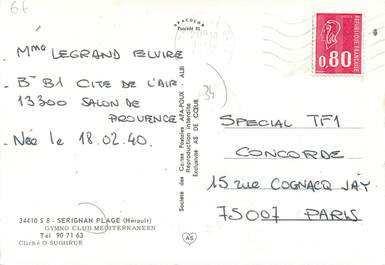 64
APACOLOR
Procédé 81
Mme LEGRAND ELVIRE
Bt B1 CITE DE L'AIR
13300 SALON DE
PROVENCE
Née le 18.02.40.
34410 S 8 - SERIGNAN PLAGE (Hérault)
GYMNO CLUB MEDITERRANEEN
Tél 90 71 63
Cliché O SUGHRUE
Société des Cartes Postales APA-POUX - ALBI
Reproduction interdite
Exclusivité AS DE CŒUR
AS
34
0,80
POSTES
FRANÇAISE
SPECIAL TF1
CONCORDE
15 rue COGNACQ JAY
75007 PARIS